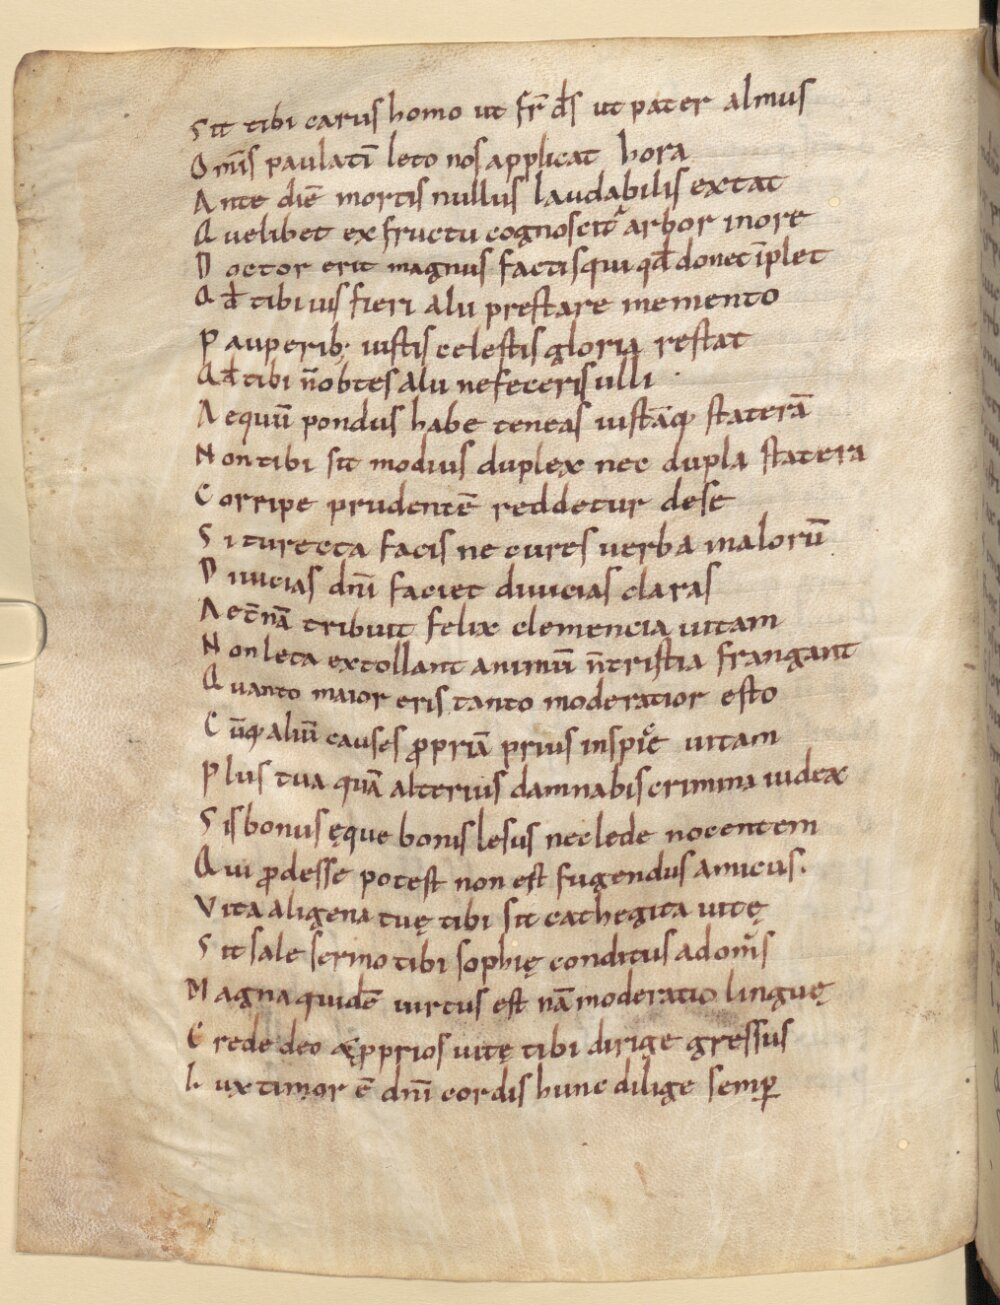 Sit tibi carus homo ut fr̄ d̄s ut pater almus
Om̄is paulatī leto nos applicat hora
Ante diē mortis nullus laudabilis extat
Quelibet ex fructu cognoscit᷑ arbor in ore
Doctor erit magnus factis qui qđ docet īplet
Qđ tibi uis fieri alii prestare memento
Pauperib; iustis celestis gloria restat
Qđ tibi n̄ obtes alii ne feceris ulli
Aequū pondus habe teneas iustāq; staterā
Non tibi sit modius duplex nec dupla statera
Corripe prudentē reddetur de se
Si tu recta facis ne cures uerba malorū
Diuicias dn̄i faciet diuicias claras
Aet̄nā tribuit felix clemencia uitam
Non leta extollant animū n̄ tristia frangant
Quanto maior eris tanto moderatior esto
Cūq; aliū causes ꝓpriā prius inspice uitam
Plus tua quā alterius damnabis crimina iudex
Sis bonus ęque bonis lesus nec lede nocentem
Qui ꝓdesse potest non est fugendus amicus.
Vita aligena tuę tibi sit cathegita uitę
Sit sale sermo tibi sophię conditus ad om̄s
Magna quidē uirtus est nā moderatio linguę
Crede deo ꝓprios uitę tibi dirige gressus
Lux timor ē dn̄i cordis hunc dilige semꝑ